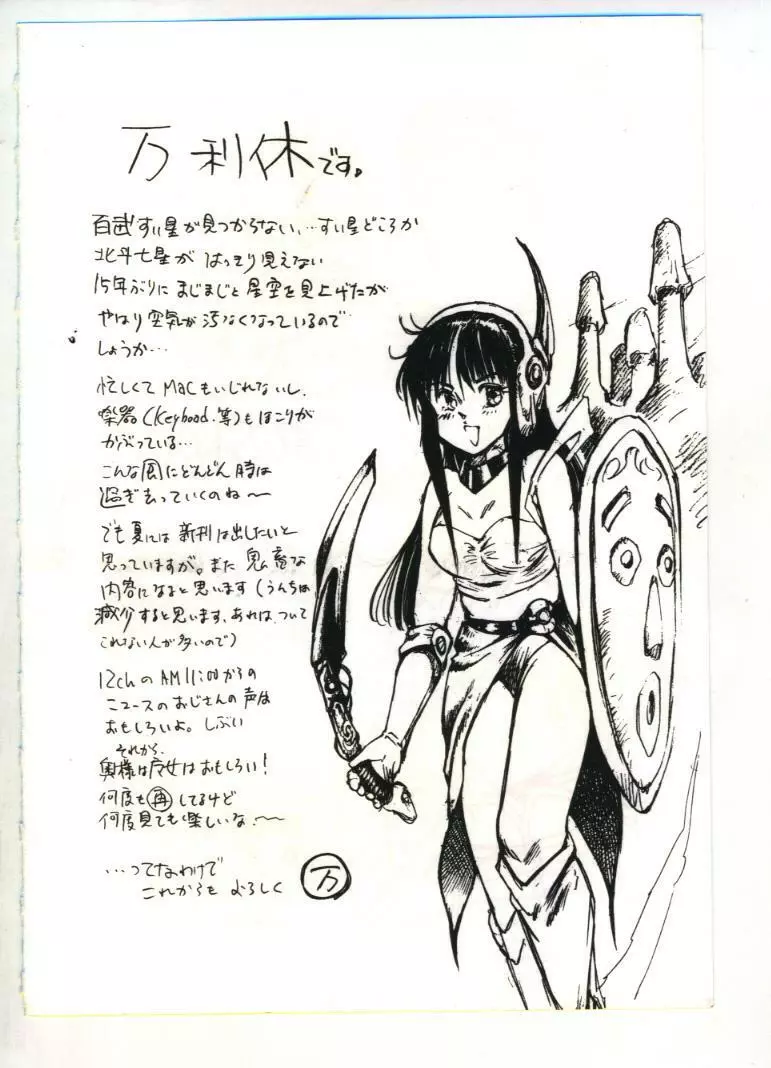 万利休です。
百武すい星が見つからない、…すい星どころか
北斗七星が はっきり見えない
15年ぶりに まじまじと 星空を見上げたが
やはり 空気が 汚なくなっているので
しょうか…
忙しくて Macもいじれないし、
楽器(Keyboad.等)もほこりが
かぶっている…
こんな風にどんどん時は
過ぎ去っていくのね〜
でも夏には 新刊は出したいと
思っていますが。また 鬼畜な
内容になると思います(うんちは
減少すると思います、あれは、ついて
これない人が多いので)
12chのAM11:00からの
ニュースのおじさんの声は
おもしろいよ。しぶい
それから、
奥様は魔女はおもしろい!
何度も再してるけど
何度見ても楽しいな〜
…ってなわけで
これからも よろしく
万